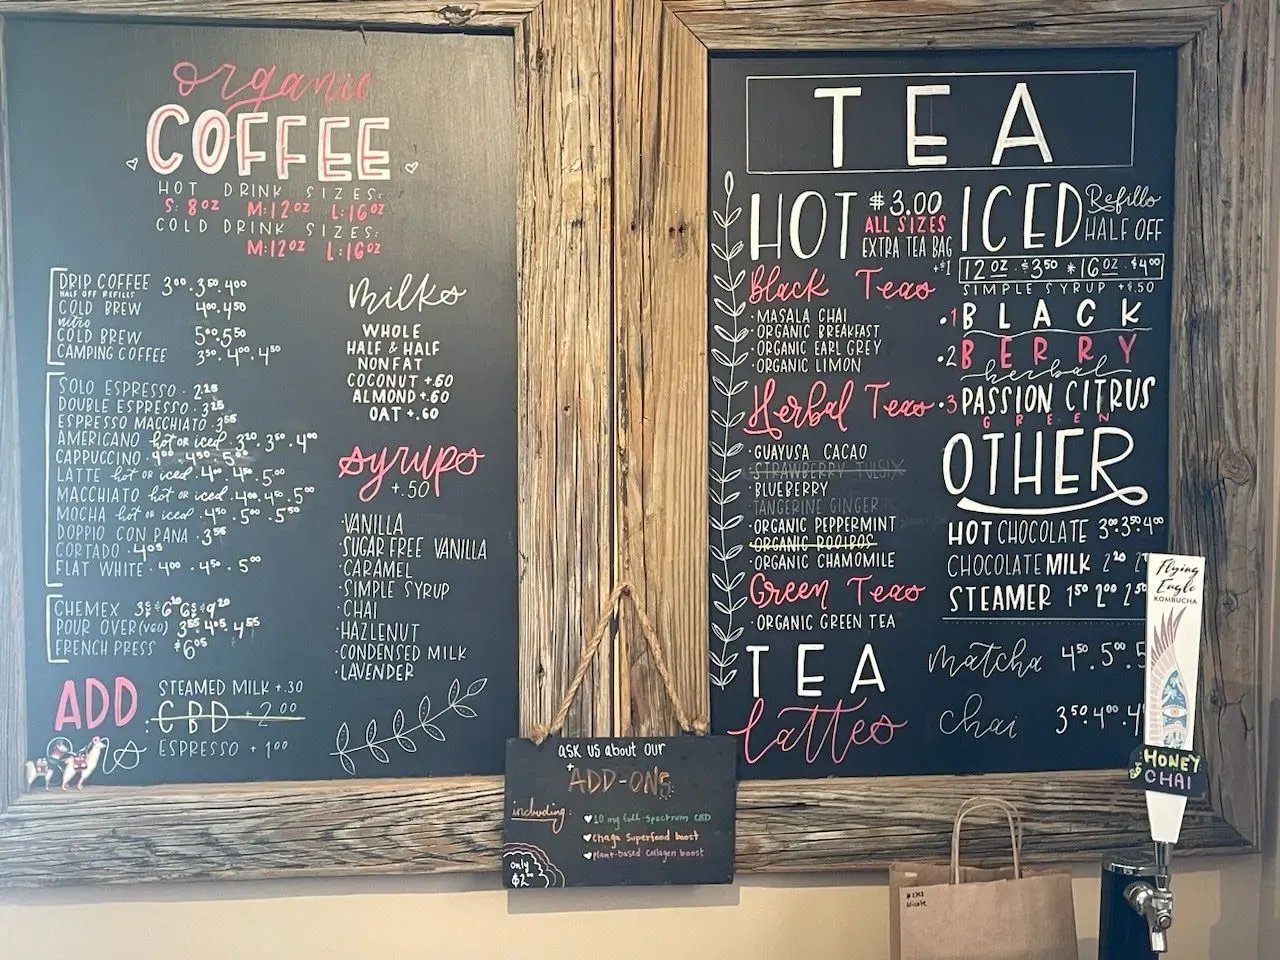 organic
COFFEE
HOT DRINK SIZES:
S: 8oz M:12oz L:16oz
COLD DRINK SIZES:
M:12oz L:16oz
DRIP COFFEE 3⁰⁰. 3⁵⁰. 4⁰⁰
HALF OFF REFILLS
COLD BREW 4⁰⁰. 4⁵⁰
nitro
COLD BREW 5⁰⁰. 5⁵⁰
CAMPING COFFEE 3⁵⁰. 4⁰⁰. 4⁵⁰
SOLO ESPRESSO · 2²⁵
DOUBLE ESPRESSO · 3²⁵
ESPRESSO MACCHIATO · 3⁵⁵
AMERICANO hot or iced · 3²⁰. 3⁵⁰. 4⁰⁰
CAPPUCCINO · 4⁰⁰ · 4⁵⁰. 5⁰⁰
LATTE hot or iced · 4⁰⁰. 4⁵⁰. 5⁰⁰
MACCHIATO hot or iced · 4⁰⁰. 4⁵⁰. 5⁰⁰
MOCHA hot or iced · 4⁵⁰. 5⁰⁰. 5⁵⁰
DOPPIO CON PANA · 3⁵⁵
CORTADO · 4⁰⁵
FLAT WHITE · 4⁰⁰ · 4⁵⁰. 5⁰⁰
CHEMEX
POUR OVER (V60) 3⁵⁵ 4⁰⁵ 4⁵⁵
FRENCH PRESS $6⁰⁵
ADD
STEAMED MILK +.30
CBD +2.00
ESPRESSO + 1⁰⁰
milks
WHOLE
HALF & HALF
NONFAT
COCONUT +.60
ALMOND +.60
OAT +.60
syrups
+.50
·VANILLA
·SUGAR FREE VANILLA
·CARAMEL
·SIMPLE SYRUP
·CHAI
·HAZLENUT
·CONDENSED MILK
·LAVENDER
ask us about our
ADD-ONS:
including:
10 mg full-spectrum CBD
chaga Superfood boost
plant-based Collagen boost
only
$2⁰⁰
TEA
HOT $3.00
ALL SIZES
EXTRA TEA BAG
+$1
Black Teas
·MASALA CHAI
·ORGANIC BREAKFAST
·ORGANIC EARL GREY
·ORGANIC LIMON
Herbal Teas
·GUAYUSA CACAO
·STRAWBERRY
·BLUEBERRY
TANGERINE GINGER
·ORGANIC PEPPERMINT
·ORGANIC ROOIBOS
·ORGANIC CHAMOMILE
Green Teas
·ORGANIC GREEN TEA
ICED Refills
HALF OFF
12oz · $3⁵⁰ * 16oz · $4⁰⁰
SIMPLE SYRUP +$.50
·1 BLACK
·2 BERRY
herbal
·3 PASSION CITRUS
GREEN
OTHER
HOT CHOCOLATE 3⁰⁰ 3⁵⁰ 4⁰⁰
CHOCOLATE MILK 2²⁰
STEAMER 1⁵⁰ 2⁰⁰ 2⁵⁰
TEA
lattes
matcha 4⁵⁰. 5⁰⁰.
chai 3⁵⁰. 4⁰⁰.
Flying
Eagle
KOMBUCHA
HONEY
CHAI
Nicole